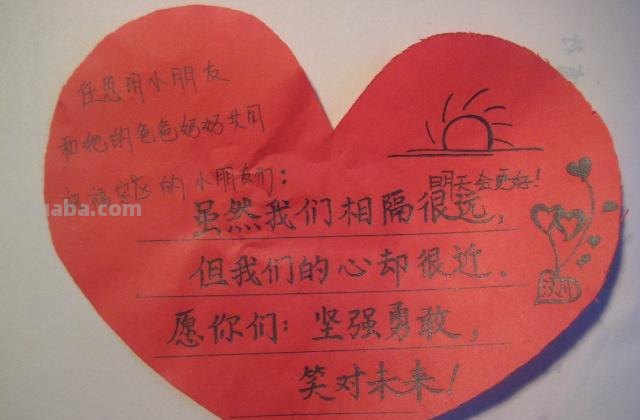 任恩用小朋友
和她的爸爸妈妈共同
祝福灾区的小朋友们：
明天会更好！
虽然我们相隔很远，
但我们的心却很近．
愿你们：坚强勇敢，
笑对未来！
汶川
uaba.com